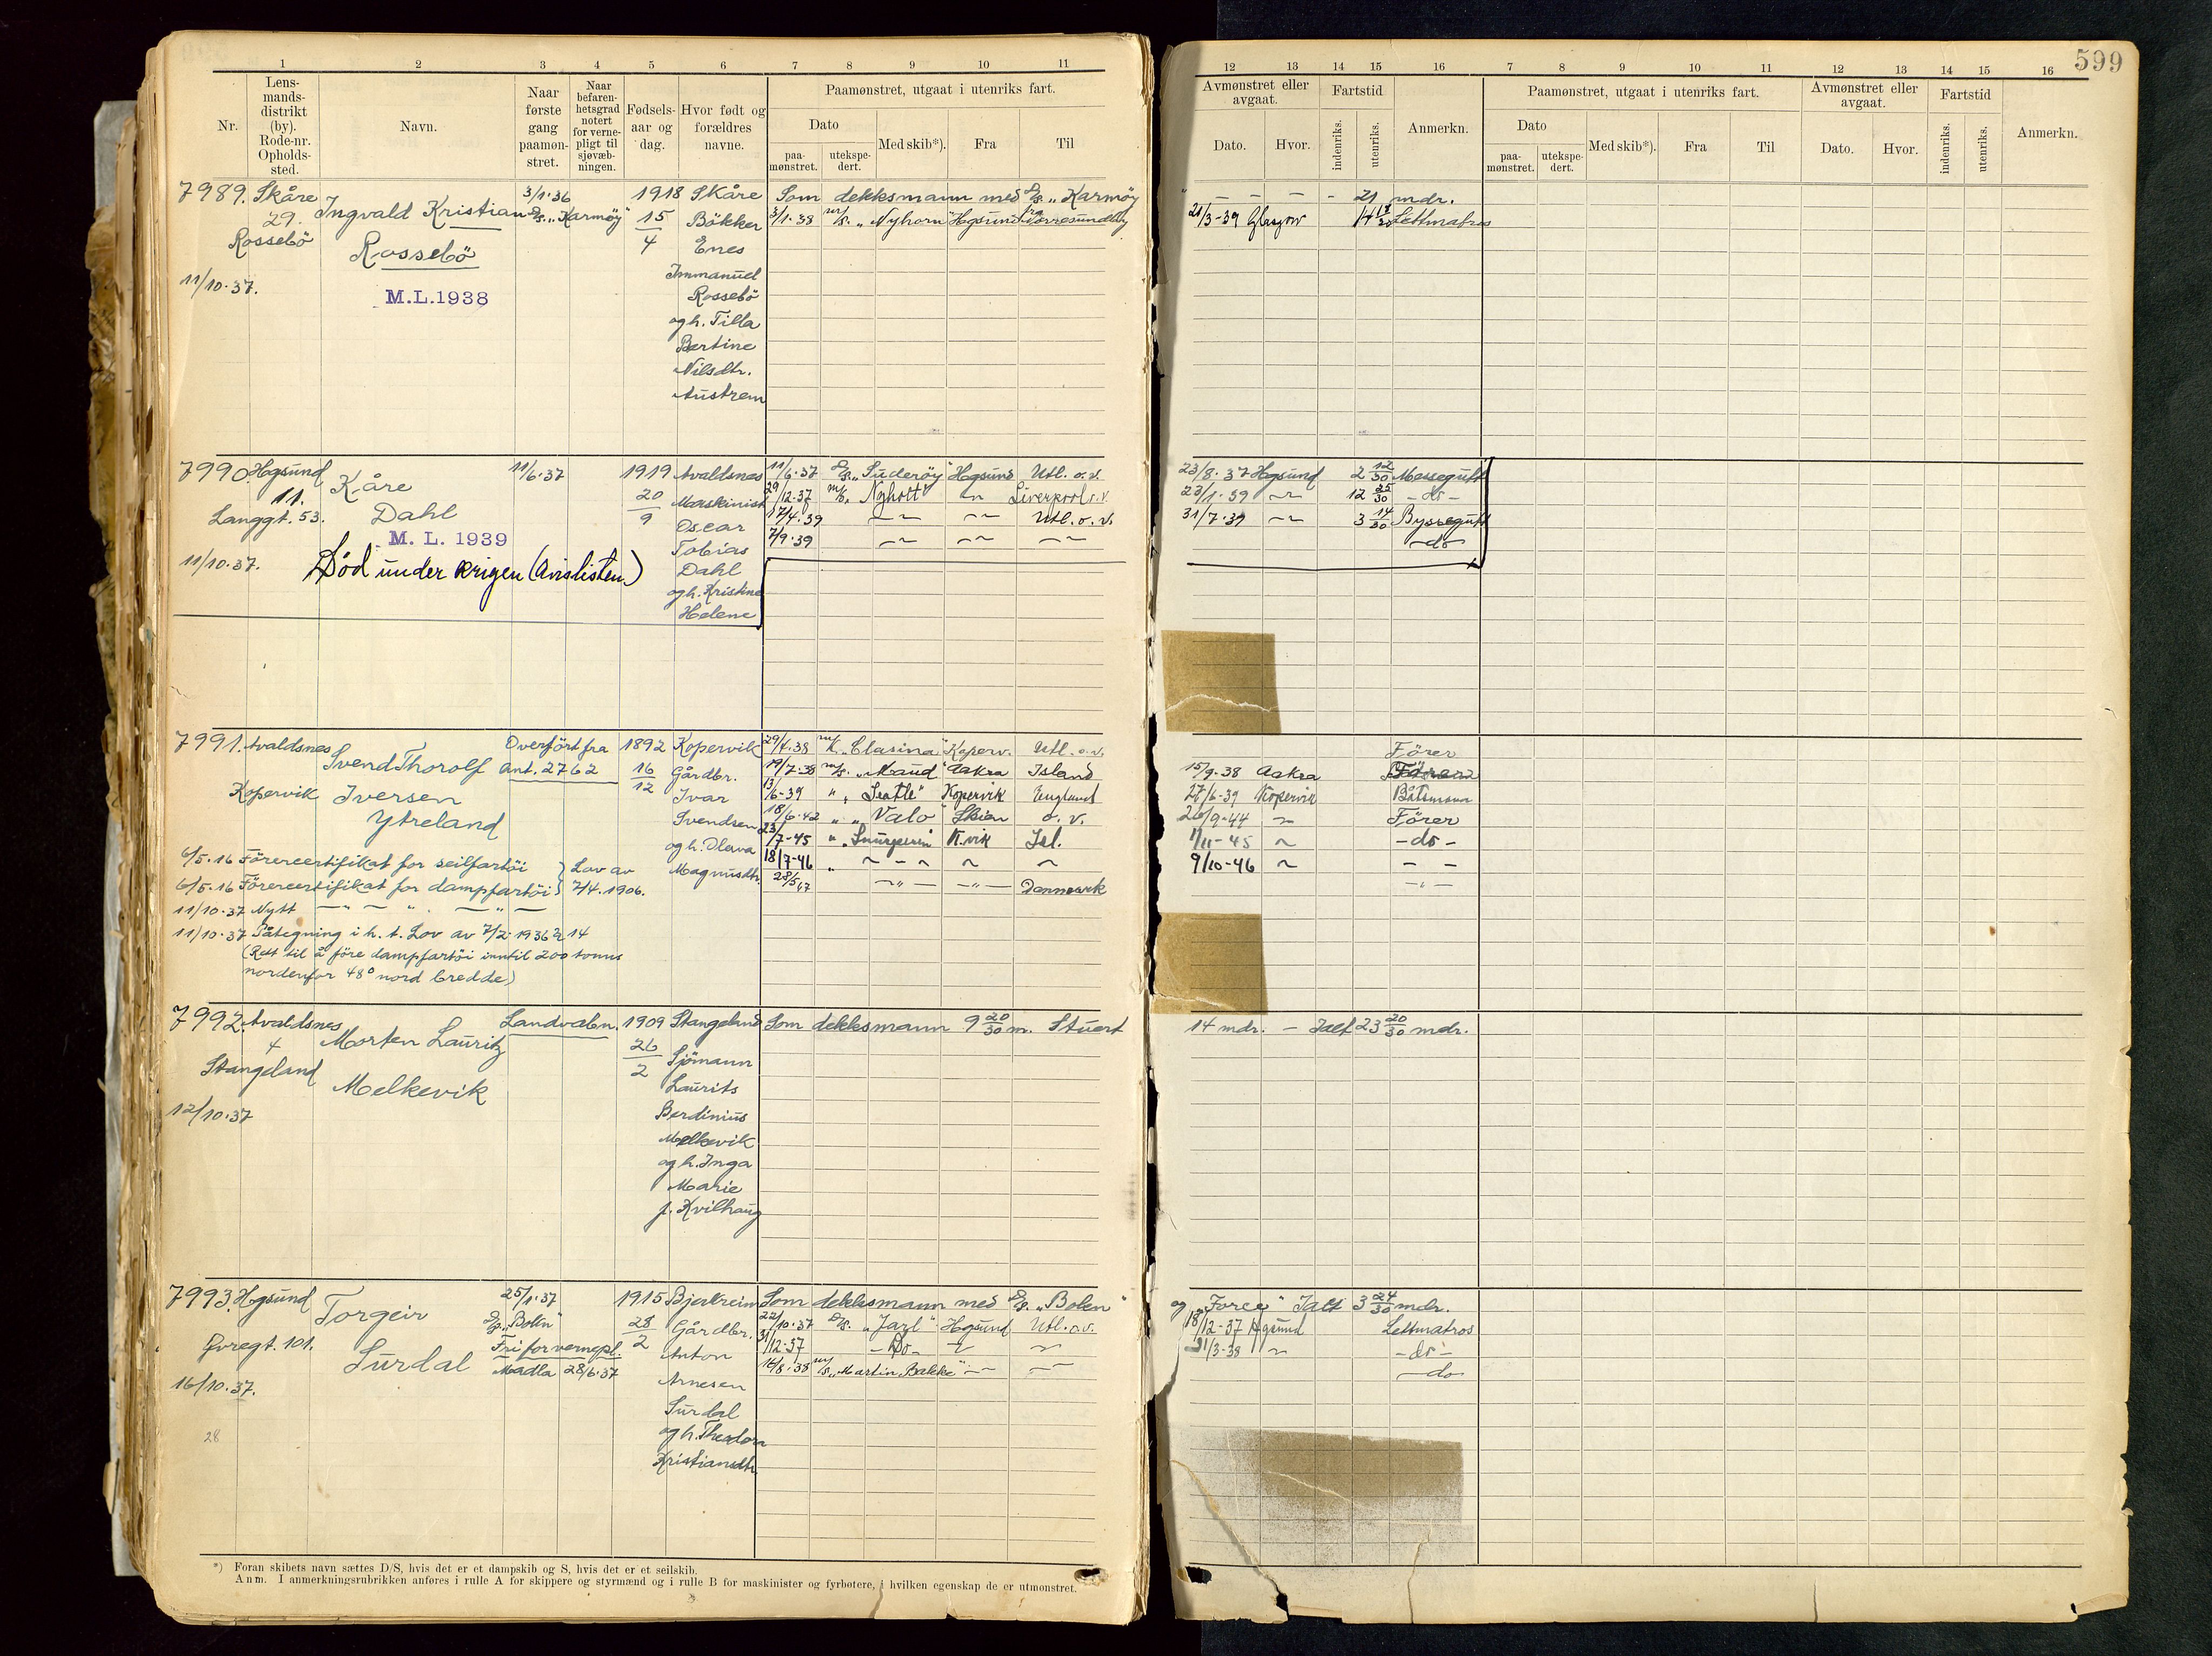 599
1 2 3 4 5 6 7 8 9 10 11
Nr.
Lens-
mands-
distrikt
(by).
Rode-nr.
Opholds-
sted.
Navn.
Naar
første
gang
paamøn-
stret.
Naar
befaren-
hetsgrad
notert
for verne-
pligt til
sjøvæb-
ningen.
Fødsels-
aar og
dag.
Hvor født og
forældres
navne.
Paamønstret, utgaat i utenriks fart.
Dato
paa-
mønstret.
utekspe-
dert.
Med skib*).
Fra
Til
12 13 14 15 16 7 8 9 10 11 12 13 14 15 16
Avmønstret eller
avgaat.
Dato.
Hvor.
Fartstid
indenriks.
utenriks.
Anmerkn.
Paamønstret, utgaat i utenriks fart.
Dato
paa-
mønstret.
utekspe-
dert.
Med skib*).
Fra
Til
Avmønstret eller
avgaat.
Dato.
Hvor.
Fartstid
indenriks.
utenriks.
Anmerkn.
7989. Skåre
29.
Rossebö
11/10.37.
Ingvald Kristian
Rossebö
M.L.1938
3/1.36
D/s. „Karmöy"
1918
15
4
Skåre
Bökker
Enes
Immanuel
Rossebö
og h. Tilla
Bertine
Nilsdtr.
Austrem
Som dekksmann med D/s. „Karmöy
3/1.38 m/s. „Nyhorn" Hgsund
" — — — - 21 mdr.
21/3-39 Glasgow 14 Lettmatros
7990. Hgsund
11.
Langgt. 53.
11/10.37.
Kåre
Dahl
M. L. 1939
Död under krigen (Avislisten)
11/6.37
1919
20
9
Avaldsnes
Maskinist
Oscar
Tobias
Dahl
og h. Kristine
Helene
11/6.37 D/s. „Suderöy" Hgsund Utl. o.v.
29/12.37 m/s. Nyholt" —"— Liverpool o.v.
17/4.39 —"— —"— Utl. o. v.
7/9.39 —"— —"— —"—
23/8.37 Hgsund 2 12/30 Messegutt
23/1.39 —"— 12 25/30 — do —
31/7.39 —"— 3 14/30 Byssegutt
— do —
7991. Avaldsnes
Kopervik
Svend Thorolf
Iversen
Ytreland
Overfört fra
Ant. 2762
1892
16
12
Kopervik
Gårdbr.
Ivar
Svendsen
og h. Olava
Magnusdtr.
6/5.16 Förercertifikat for seilfartöi
6/5.16 Förercertifikat for dampfartöi } Lov av 7/4.1906.
11/10.37 Nytt — " — " — " —
11/10.37 Påtegning i h. t. Lov av 7/2.1936 § 14
(Rett til å före dampfartöi inntil 200 tonns
nordenfor 48° nord bredde)
29/4.38 m/k. „Clasina" Koperv. Utl. o.v.
19/7.38 m/s. „Maud" Aakra Island
13/6-39 " „Seatle" Kopervik England
18/6.42 " „Valo" Skien o. v.
23/7-45 " K.vik Isl.
18/7-46 " — " — " "
28/5 47 —"— —"— Danmark
Förer
15/9-38 Aakra
27/6-39 Kopervik Båtsmann
26/9-44 —"— Förer
1/11-45 " — do —
9/10-46 " — —
— " —
7992. Avaldsnes
4
Stangeland
12/10.37
Morten Lauritz
Melkevik
Landvabn.
1909
26
2
Stangeland
Sjömann
Laurits
Berdinius
Melkevik
og h. Inga
Marie
f. Kvilhaug
Som dekksmann 9 20/30 m. Stuert
14 mdr. — Ialt 23 20/30 mdr.
7993. Hgsund
Øvregt. 101.
16/10.37.
28
Torgeir
Surdal
25/1.37
D/s. „Bolen"
Fri for vernepl.
Madla 28/6.37
1915
28
2
Bjerkreim
Gårdbr.
Anton
Arnesen
Surdal
og h. Theodora
Kristiansdtr.
Som dekksmann med D/s. „Bolen"
22/10.37 D/s. „Jarl" Hgsund Utl. o.v.
31/12.37 — Do — " "
16/8.38 m/s. „Martin Bakke" —"— —"—
og „Force" Ialt 3 24/30 mdr.
18/12-37 Hgsund Lettmatros
31/3-38 " — do —
— do
*) Foran skibets navn sættes D/S, hvis det er et dampskib og S, hvis det er et seilskib.
Anm. I anmerkningsrubrikken anføres i rulle A for skippere og styrmænd og i rulle B for maskinister og fyrbøtere, i hvilken egenskap de er utmønstret.